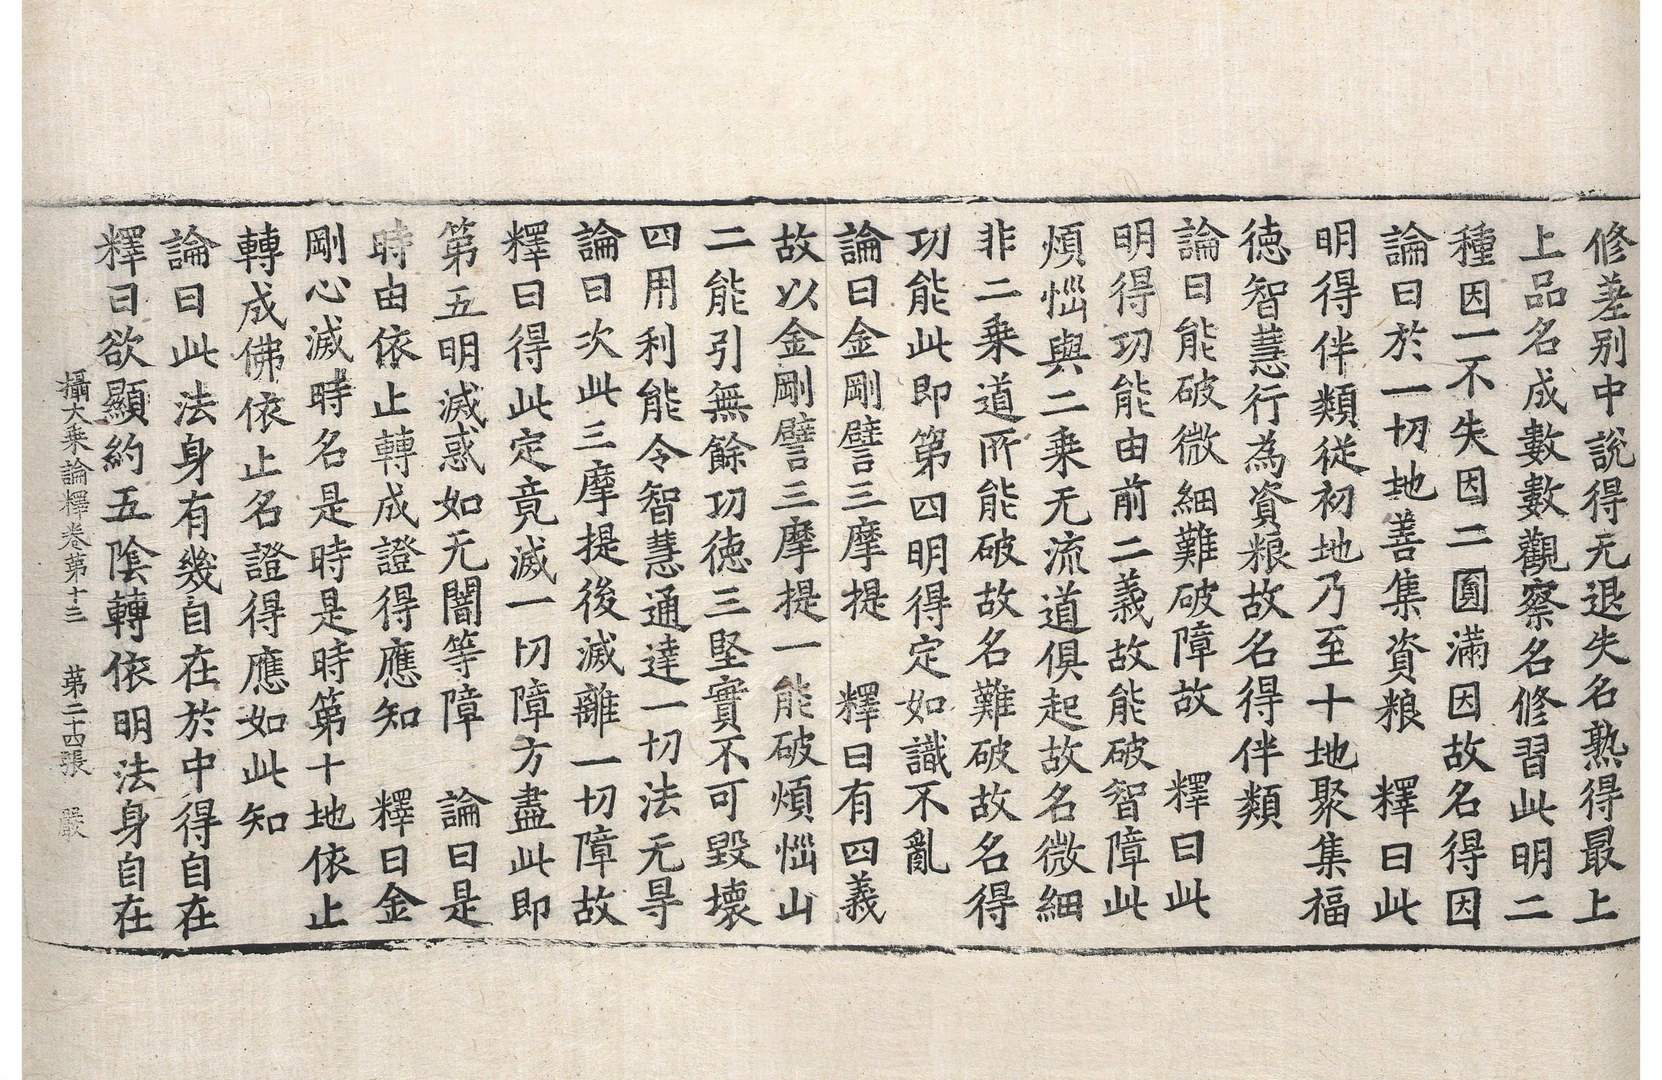 修差別中說得无退失名熟得最上
上品名成數數觀察名修習此明二
種因一不失因二圓滿因故名得因
論曰於一切地善集資粮　釋曰此
明得伴類從初地乃至十地聚集福
徳智慧行為資粮故名得伴類
論曰能破微細難破障故　釋曰此
明得功能由前二義故能破智障此
煩惱與二乗无流道俱起故名微細
非二乗道所能破故名難破故名得
功能此即第四明得定如識不亂
論曰金剛譬三摩提　釋曰有四義
故以金剛譬三摩提一能破煩惱山
二能引無餘功徳三堅實不可毀壞
四用利能令智慧通達一切法无㝵
論曰次此三摩提後滅離一切障故
釋曰得此定竟滅一切障方盡此即
第五明滅惑如无闇等障　論曰是
時由依止轉成證得應知　釋曰金
剛心滅時名是時是時第十地依止
轉成佛依止名證得應如此知
論曰此法身有幾自在於中得自在
釋曰欲顯約五陰轉依明法身自在
攝大乗論釋卷第十三　第二十四張　嚴